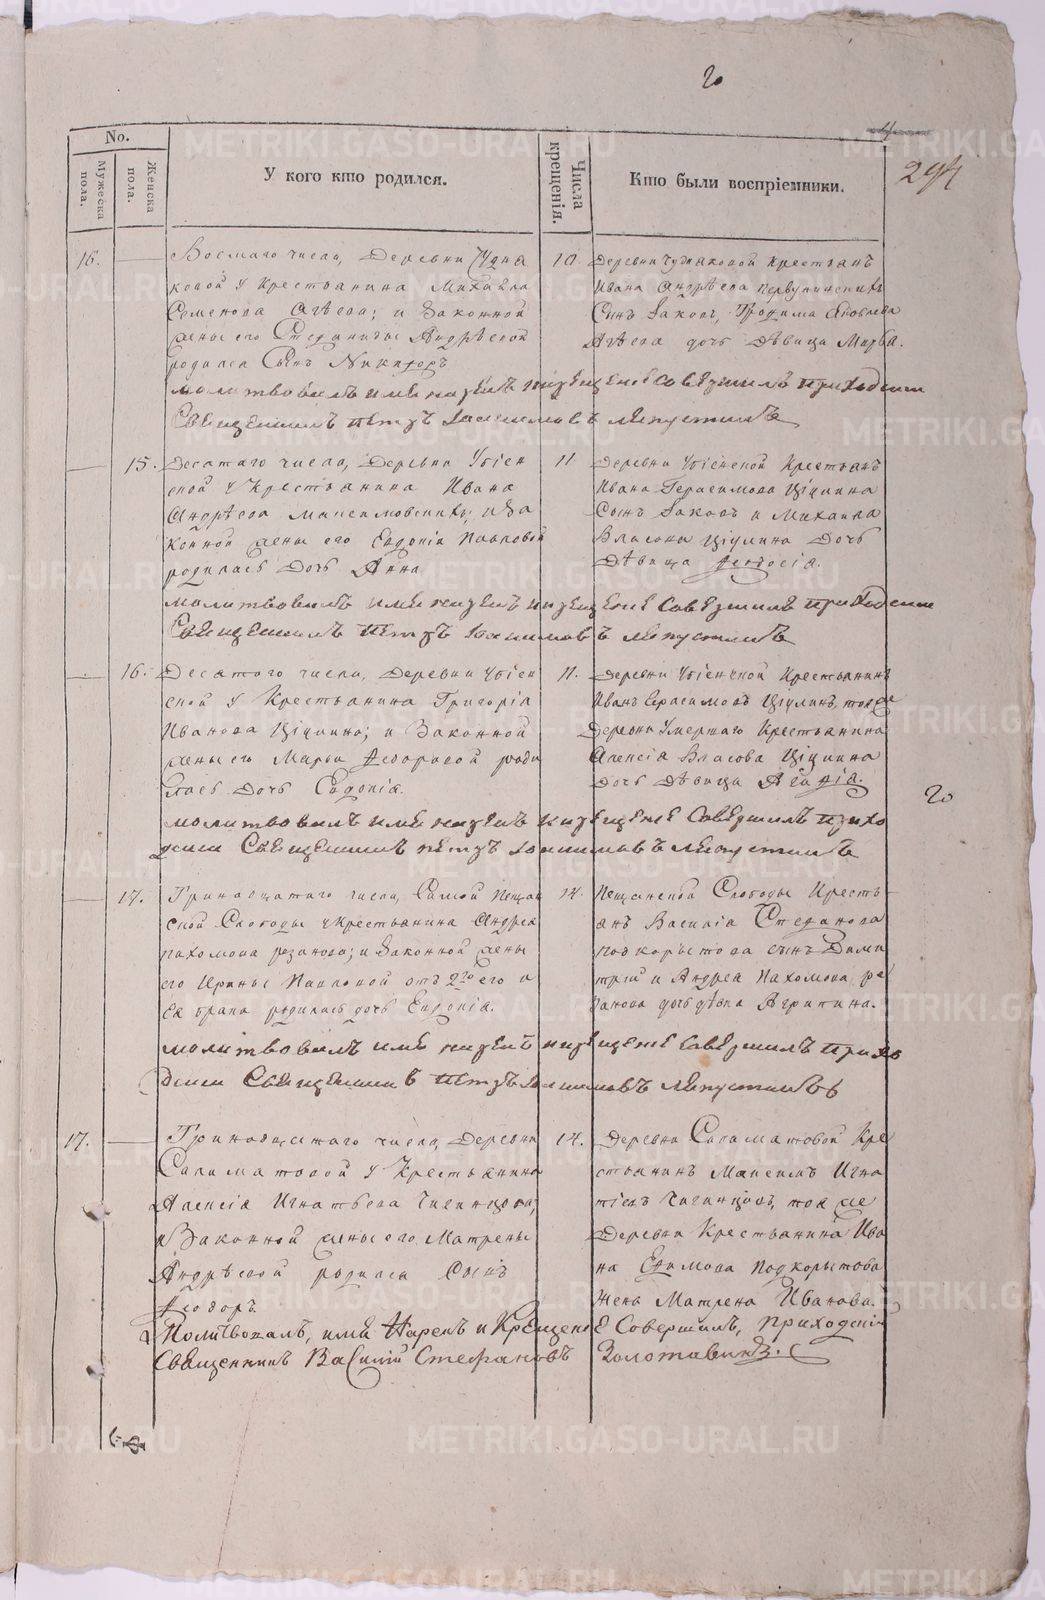 го
No.
Мужеска пола.
Женска пола.
У кого кто родился.
Числа крещенія.
Кто были воспріемники.
4
294
16.
Восмаго числа, Деревни Чудна
ковой у Крестьянина Михайла
Семенова Агѣева; и Законной
жены его Стефаниды Андрѣевой
родился Сынъ Никифоръ
10
Деревни Чудаковой Крестьянъ
Ивана Андрѣева Первушинскихъ
Сынъ Іаковъ, Трофима Яковлева
Агѣева дочь Дѣвица Марѳа.
молитвовалъ имя нарекъ и крещеніе совершилъ приходски
Священникъ Петръ Іоакимовъ
15.
Десятаго числа, Деревни Убіен
ской у Крестьянина Ивана
Андрѣева Максимовскихъ; и За
конной жены его Евдокіи Павловой
родилась Дочь Анна
11
Деревни Убіенской Крестьянъ
Ивана Герасимова Ціцилина
Сынъ Іаковъ и Михаила
Власова Ціцилина Дочь
Дѣвица Феодосія.
молитвовалъ имя нарекъ и крещеніе совершилъ приходски
Священникъ Петръ Іоакимовъ
16.
Десятаго числа, Деревни Убіен
ской у Крестьянина Григорія
Иванова Ціцилина; и Законной
жены его Марьи Феодоровой роди
лась Дочь Евдокія.
11.
Деревни Убіенской Крестьянинъ
Иванъ Герасимовъ Ціцилинъ, той же
Деревни Умершаго Крестьянина
Алексія Власова Ціцилина
Дочь Дѣвица Агафія.
го
молитвовалъ имя нарекъ и крещеніе совершилъ прихо
дски Священникъ Петръ Іоакимовъ
17.
Тринадцатаго числа, Самой Пещан
ской Слободы у Крестьянина Андрея
Пахомова Резанова; и Законной жены
его Ирины Павловой отъ 2го его и
ея брака родилась дочь Евдокія.
14.
Пещанской Слободы Кресть
янъ Василія Стефанова
Подкорытова сынъ Дими
трій и Андрея Пахомова Ре
занова дочь дѣвка Агрипина.
молитвовалъ имя нарекъ и крещеніе совершилъ прихо
дски Священникъ Петръ Іоакимовъ
17.
Тринадцатаго числа, Деревни
Саламатовой у Крестьянина
Алексія Игнатьева Чигинцова;
и Законной жены его Матрены
Андрѣевой родился Сынъ
Феодоръ.
14.
Деревни Саламатовой Кре
стьянинъ Максимъ Игна
тіевъ Чигинцовъ, той же
Деревни Крестьянина Ива
на Ефимова Подкорытова
Жена Матрена Иванова.
Молитвовалъ, имя Нарекъ и Крещеніе Совершилъ, приходскій
Священникъ Василій Стефановъ Золотавинъ.
METRIKI.GASO-URAL.RU